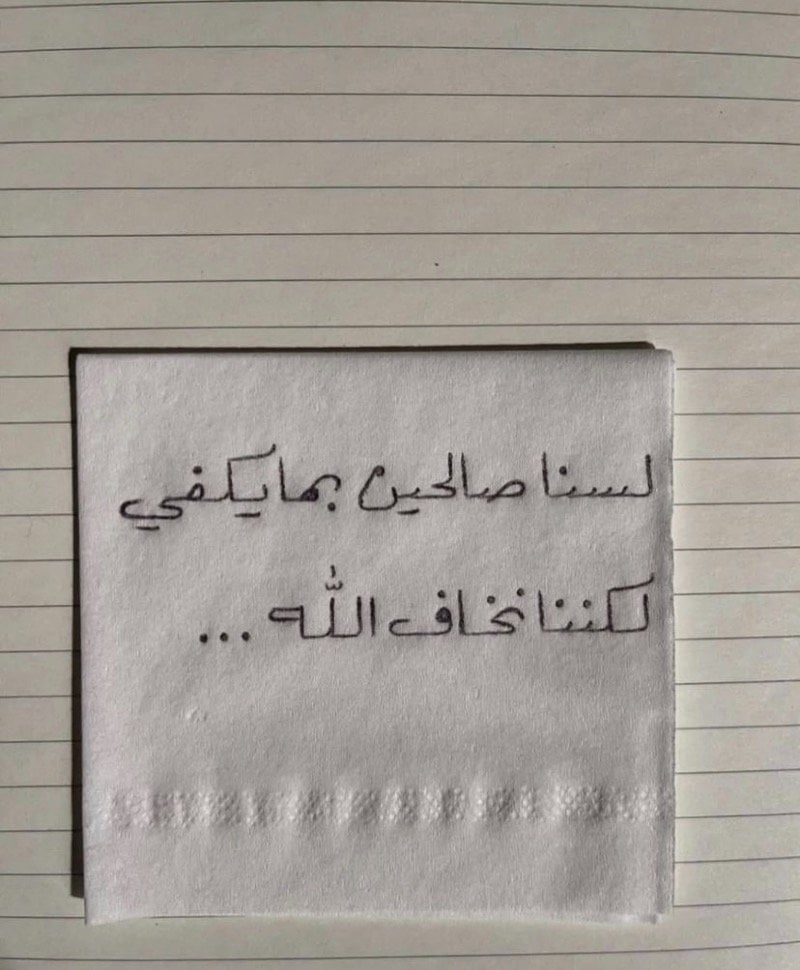 لسنا صالحين بما يكفي
لكننا نخاف الله ...